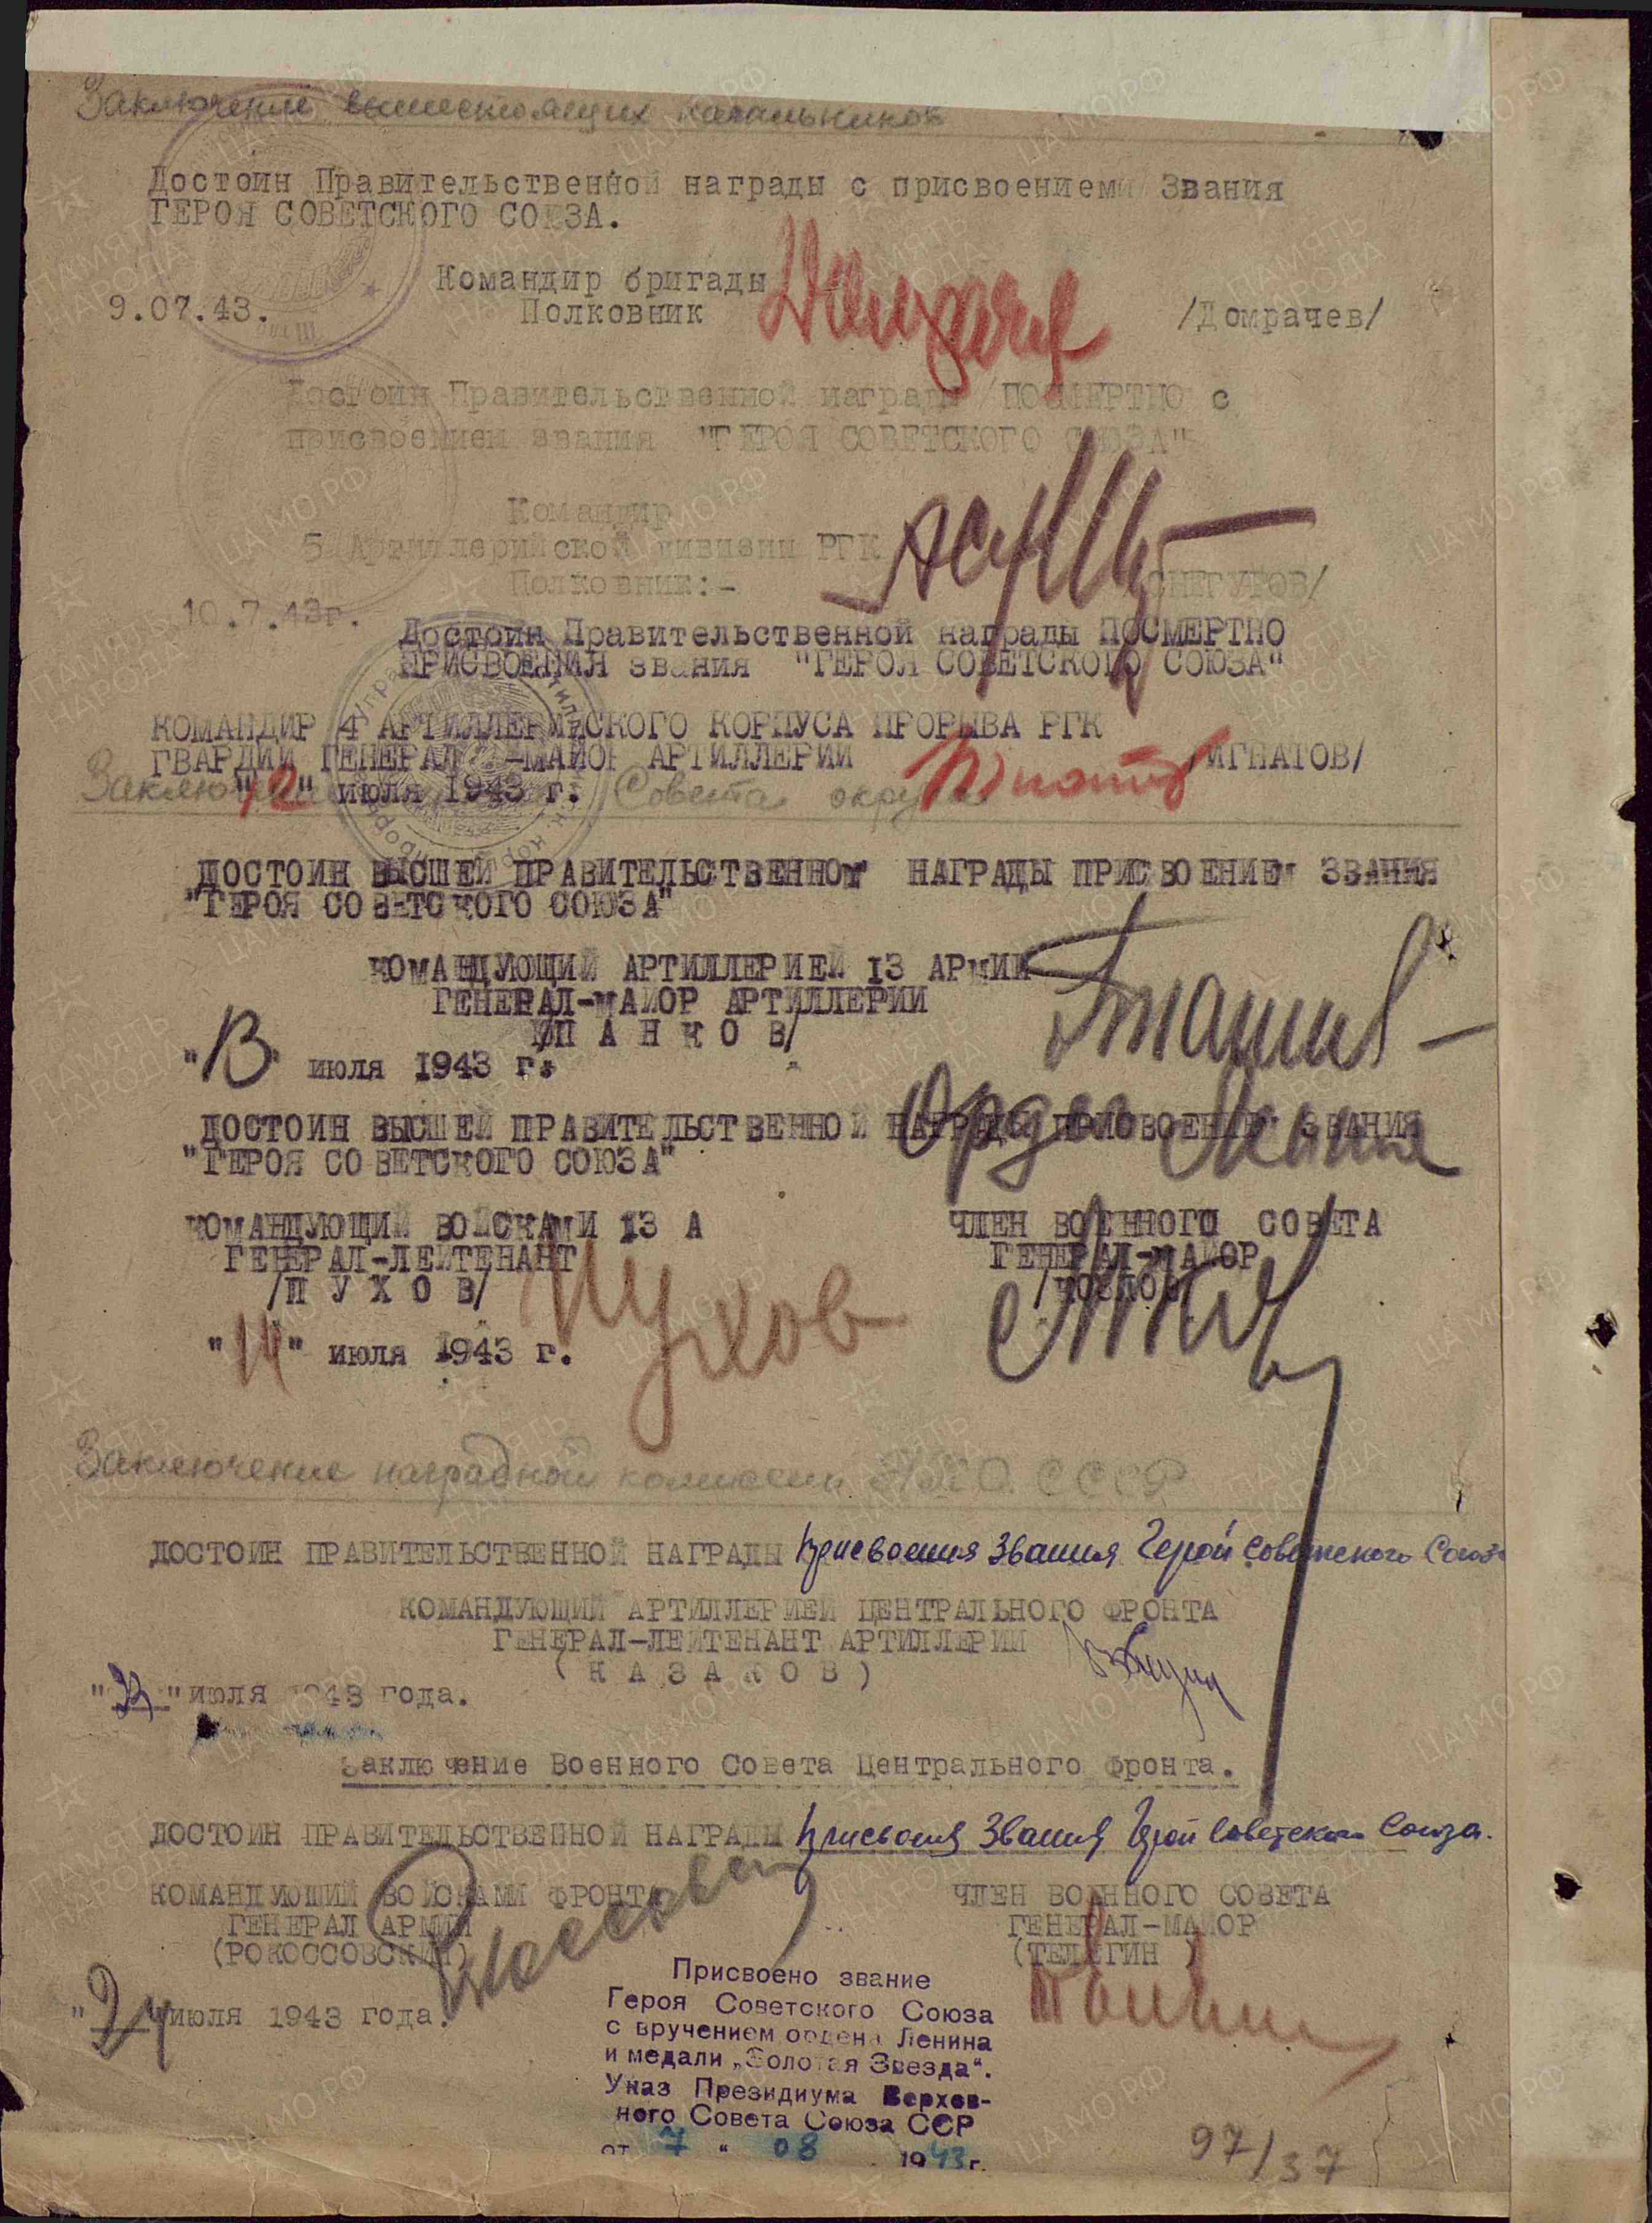 Заключение вышестоящих начальников
Достоин Правительственной награды с присвоением Звания
ГЕРОЯ СОВЕТСКОГО СОЮЗА.
Командир бригады
9.07.43. Полковник /Домрачев/
Достоин Правительственной награды /ПОСМЕРТНО с
присвоением звания "ГЕРОЯ СОВЕТСКОГО СОЮЗА"
Командир
5 Артиллерийской дивизии РГК
Полковник:- СНЕГУРОВ/
10.7.43г.
Достоин Правительственной награды ПОСМЕРТНО
ПРИСВОЕНИЯ звания "ГЕРОЯ СОВЕТСКОГО СОЮЗА"
КОМАНДИР 4 АРТИЛЛЕРИЙСКОГО КОРПУСА ПРОРЫВА РГК
ГВАРДИИ ГЕНЕРАЛ-МАЙОР АРТИЛЛЕРИИ /ИГНАТОВ/
"12" июля 1943 г.
Заключение Совета округа
ДОСТОИН ВЫСШЕЙ ПРАВИТЕЛЬСТВЕННОЙ НАГРАДЫ ПРИСВОЕНИЕМ ЗВАНИЯ
"ГЕРОЯ СОВЕТСКОГО СОЮЗА"
КОМАНДУЮЩИЙ АРТИЛЛЕРИЕЙ 13 АРМИИ
ГЕНЕРАЛ-МАЙОР АРТИЛЛЕРИИ
/ПАНКОВ/
"13" июля 1943 г.
Орден Ленина
ДОСТОИН ВЫСШЕЙ ПРАВИТЕЛЬСТВЕННОЙ НАГРАДЫ ПРИСВОЕНИЕМ ЗВАНИЯ
"ГЕРОЯ СОВЕТСКОГО СОЮЗА"
КОМАНДУЮЩИЙ ВОЙСКАМИ 13 А ЧЛЕН ВОЕННОГО СОВЕТА
ГЕНЕРАЛ-ЛЕЙТЕНАНТ ГЕНЕРАЛ-МАЙОР
/ПУХОВ/ Пухов /КОЗЛОВ/
"14" июля 1943 г.
Заключение наградной комиссии НКО СССР
ДОСТОИН ПРАВИТЕЛЬСТВЕННОЙ НАГРАДЫ присвоения звания Герой Советского Союза
КОМАНДУЮЩИЙ АРТИЛЛЕРИЕЙ ЦЕНТРАЛЬНОГО ФРОНТА
ГЕНЕРАЛ-ЛЕЙТЕНАНТ АРТИЛЛЕРИИ
(КАЗАКОВ)
"23" июля 1943 года.
Заключение Военного Совета Центрального фронта.
ДОСТОИН ПРАВИТЕЛЬСТВЕННОЙ НАГРАДЫ присвоения звания Герой Советского Союза.
КОМАНДУЮЩИЙ ВОЙСКАМИ ФРОНТА ЧЛЕН ВОЕННОГО СОВЕТА
ГЕНЕРАЛ АРМИИ ГЕНЕРАЛ-МАЙОР
(РОКОССОВСКИЙ) (ТЕЛЕГИН)
"24" июля 1943 года.
Присвоено звание
Героя Советского Союза
с вручением ордена Ленина
и медали „Золотая Звезда“.
Указ Президиума Верхов-
ного Совета Союза ССР
от 7 " 08 1943г.
97/37